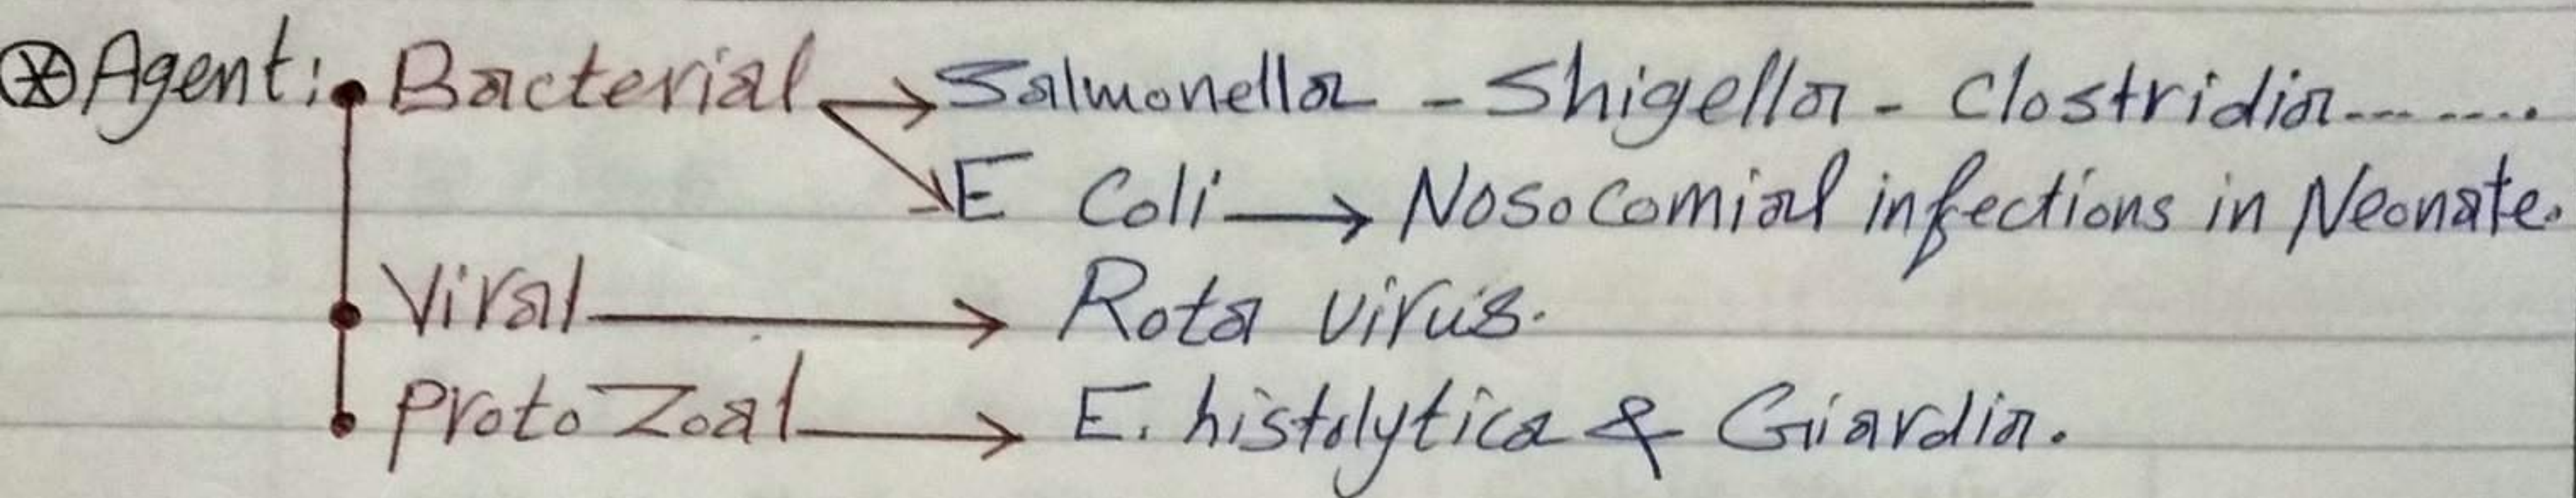 ⊛ Agent: • Bacterial → Salmonella - Shigella - Clostridia........
→ E Coli → Nosocomial infections in Neonate.
• Viral → Rota virus.
• ProtoZoal → E. histolytica & Giardia.